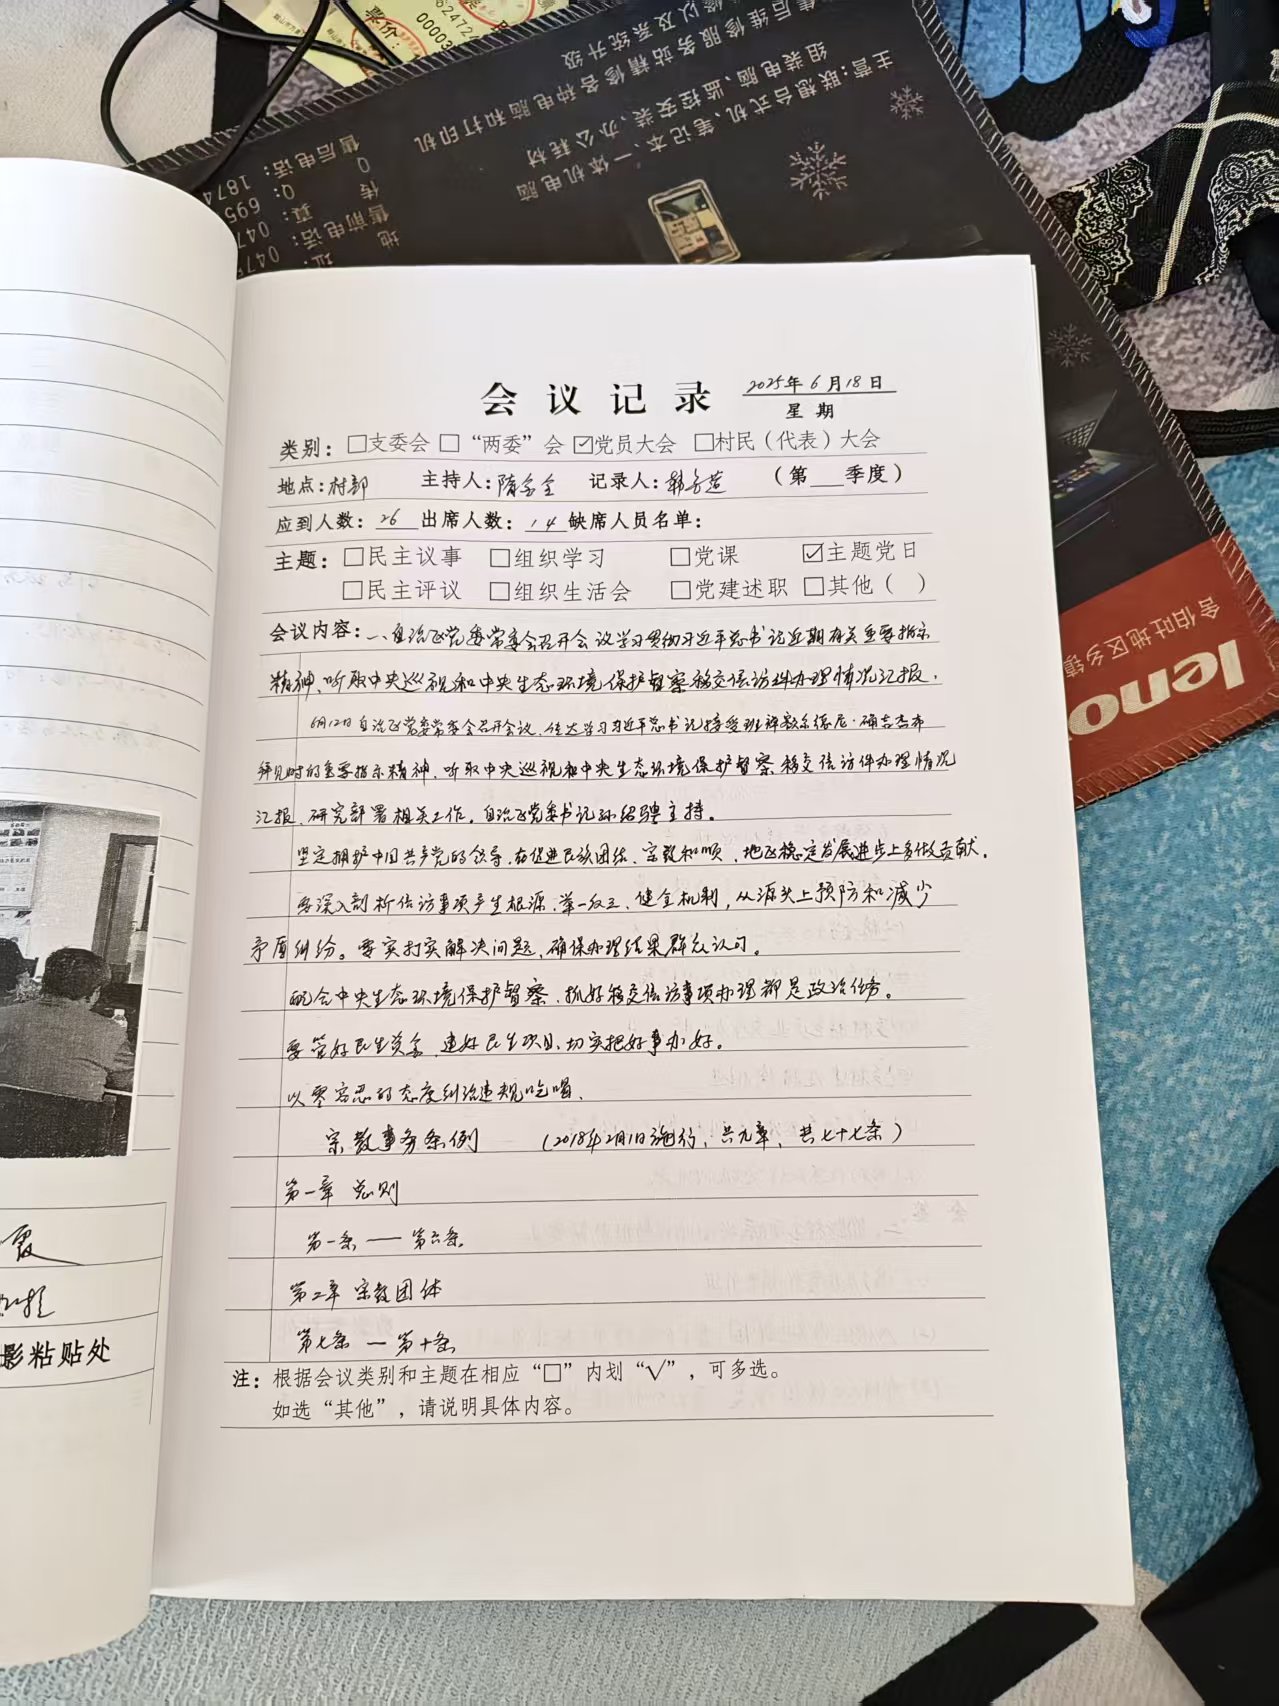 票价:
0000
主营:联想台式机、笔记本、一体机电脑
组装电脑、监控安装、办公耗材
售后维修服务站精修各种电脑和打印机
修以及系统升级
售后电话: 1874
Q Q: 695
传 真: 047
售前电话: 047
地 址:
lenovo
舍伯吐地区乡镇
会议记录
2025年6月18日
星期
类别: □支委会 □“两委”会 ☑党员大会 □村民(代表)大会
地点:村部 主持人:隋 记录人:韩 (第 季度)
应到人数: 26 出席人数: 14 缺席人员名单:
主题: □民主议事 □组织学习 □党课 ☑主题党日
□民主评议 □组织生活会 □党建述职 □其他( )
会议内容:一、自治区党委常委会召开会议学习贯彻习近平总书记近期有关重要指示
精神、听取中央巡视和中央生态环境保护督察移交信访件办理情况汇报.
6月12日自治区党委常委会召开会议、传达学习习近平总书记接受班禅额尔德尼·确吉杰布
拜见时的重要指示精神、听取中央巡视和中央生态环境保护督察移交信访件办理情况
汇报、研究部署相关工作。自治区党委书记孙绍骋主持。
坚定拥护中国共产党的领导、在促进民族团结、宗教和顺、地区稳定发展进步上多做贡献.
要深入剖析信访事项产生根源、举一反三、健全机制,从源头上预防和减少
矛盾纠纷。要实打实解决问题、确保办理结果群众认可。
配合中央生态环境保护督察、抓好移交信访事项办理都是政治任务。
要管好民生资金、建好民生项目、切实把好事办好。
以零容忍的态度纠治违规吃喝、
宗教事务条例 (2018年2月1日施行、共九章、共七十七条)
第一章 总则
第一条——第六条
第二章 宗教团体
第七条—第十条
注: 根据会议类别和主题在相应“□”内划“√”,可多选。
如选“其他”,请说明具体内容。
霞
影粘贴处